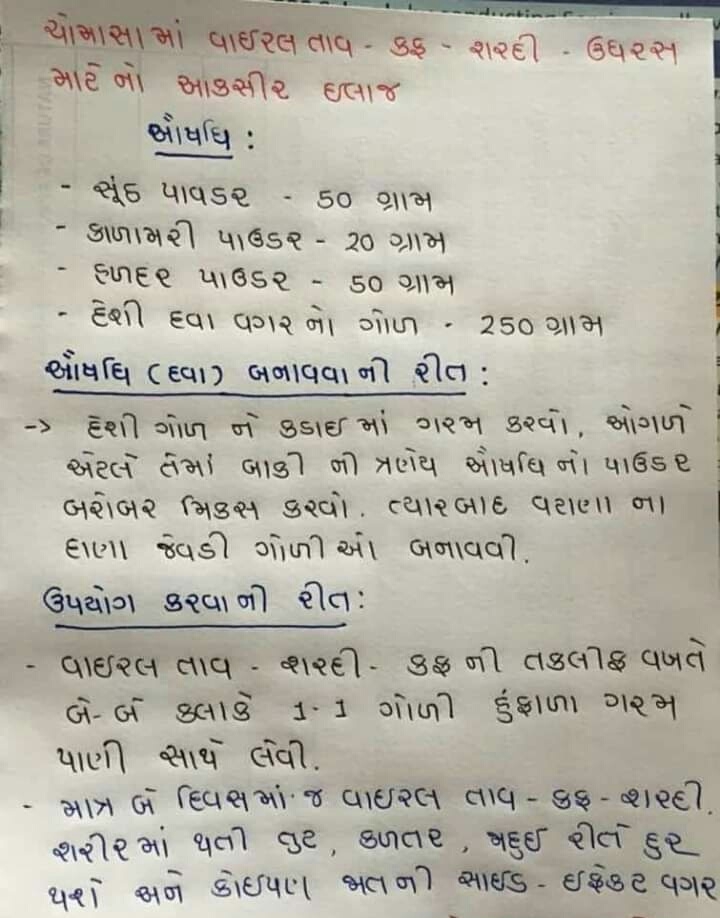 ચોમાસામાં વાઈરલ તાવ - કફ - શરદી - ઉધરસ
માટેનો અકસીર ઇલાજ
ઔષધિ :
- સૂંઠ પાવડર - 50 ગ્રામ
- કાળામરી પાઉડર - 20 ગ્રામ
- હળદર પાઉડર - 50 ગ્રામ
- દેશી દવા વગરનો ગોળ - 250 ગ્રામ
ઔષધિ (દવા) બનાવવાની રીત :
-> દેશી ગોળ ને કડાઈમાં ગરમ કરવો, ઓગળે
એટલે તેમાં બાકી ની ત્રણેય ઔષધિ નો પાઉડર
બરોબર મિકસ કરવો. ત્યારબાદ વટાણા ના
દાણા જેવડી ગોળીઓ બનાવવી.
ઉપયોગ કરવાની રીત :
- વાઈરલ તાવ - શરદી - કફ ની તકલીફ વખતે
બે-બે કલાકે 1-1 ગોળી હુંફાળા ગરમ
પાણી સાથે લેવી.
- માત્ર બે દિવસમાં જ વાઈરલ તાવ - કફ - શરદી.
શરીરમાં થતી તુટ, કળતર, બધુઈ રીતે દુર
થશે અને કોઈપણ જાતની સાઈડ - ઈફેકટ વગર